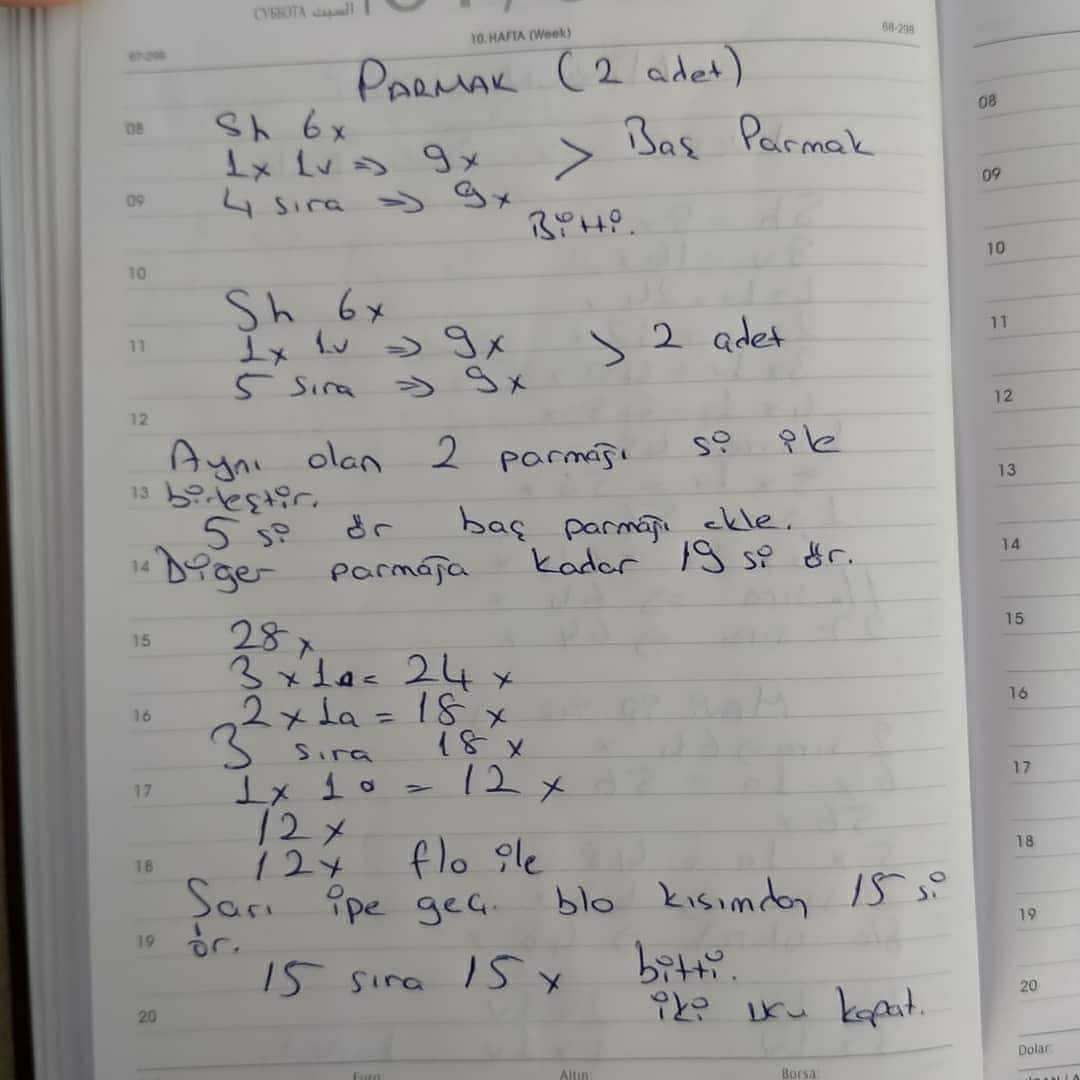 СУББОТА السبت
10. HAFTA (Week)
67-298
68-298
PARMAK (2 adet)
08 Sh 6x
1x 1v => 9x > Baş Parmak
09 4 sıra => 9x
Bitti.
10
Sh 6x
11 1x 1v => 9x > 2 adet
5 sıra => 9x
12
Aynı olan 2 parmağı si ile
13 birleştir.
5 si ör baş parmağı ekle.
14 Diğer parmağa kadar 19 si ör.
15 28x
3x1a= 24x
16 2x1a = 18x
3 sıra 18x
17 1x 1a = 12x
12x
18 12x flo ile
Sarı ipe geç. blo kısımdan 15 si
19 ör.
15 sıra 15x bitti.
20 iki ucu kapat.
Euro: Altın: Borsa:
08
09
10
11
12
13
14
15
16
17
18
19
20
Dolar: